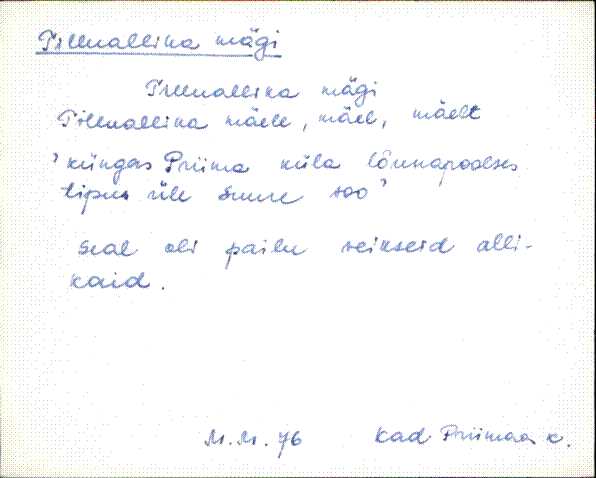 Pilluallika mägi
Pilluallika mägi
Pilluallika mäele, mäel, mäelt
'küngas Priima küla lõunapoolses
tipus üle suure soo'
seal oli pailu seikseid alli-
kaid.
M.M. 76 Kad Priimaa k.